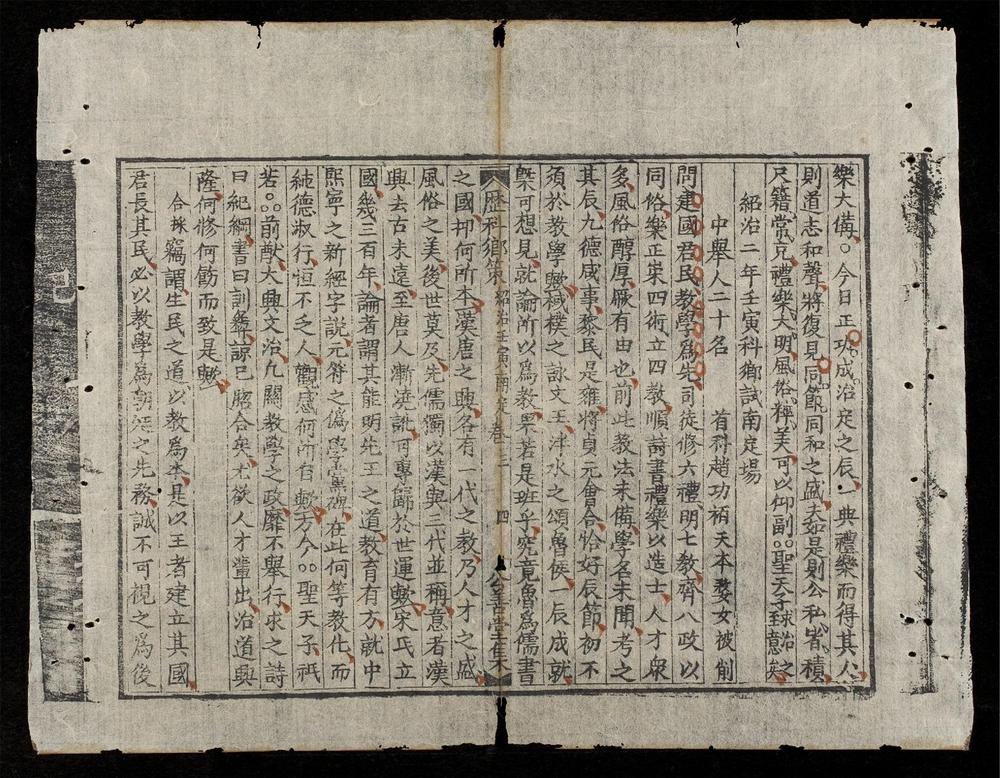 樂大備○今日正功成治定之辰一典禮樂而得其人
則道志和聲將復見同節同和之盛夫如是則公私皆積
尺籍常充禮樂大明風俗稡美可以仰副○○聖天子球治之
紹治二年壬寅科鄉試南定場
中舉人二十名 首科趙功稍天本婺女被削
問建國君民教學爲先司徒修六禮明七教齊八政以
同俗樂正宗四術立四教順詩書禮樂以造士人才衆
多風俗醇厚厥有由也前此教法未備學名未聞考之
其辰九德咸事黎民是雍將貞元會合恰好辰節初不
須於教學歟棫樸之詠文王泮水之頌魯侯一辰成就
槩可想見就論所以爲教果若是班乎究竟魯爲儒書
歷科鄉策 紹治壬寅 南定 卷三 四 公善堂集
之國抑何所本漢唐之興各有一代之教乃人才之盛
風俗之美後世莫及先儒獨以漢與三代並稱意者漢
興去古未遠至唐人漸澆訛可專歸於世運歟宋氏立
國幾三百年論者謂其能明先王之道教育有方就中
熙寧之新經字說元符之僞學黨禁在此何等教化而
純德淑行恒不乏人觀感何所自歟方今○○聖天子祇
若○○前猷大興文治凡關教學之政靡不舉行求之詩
曰紀綱書曰訓彝諒已脗合矣尤欲人才輩出治道興
隆何修何飭而致是歟
合操竊謂生民之道以教爲本是以王者建立其國
君長其民必以教學爲朝廷之先務誠不可視之爲後